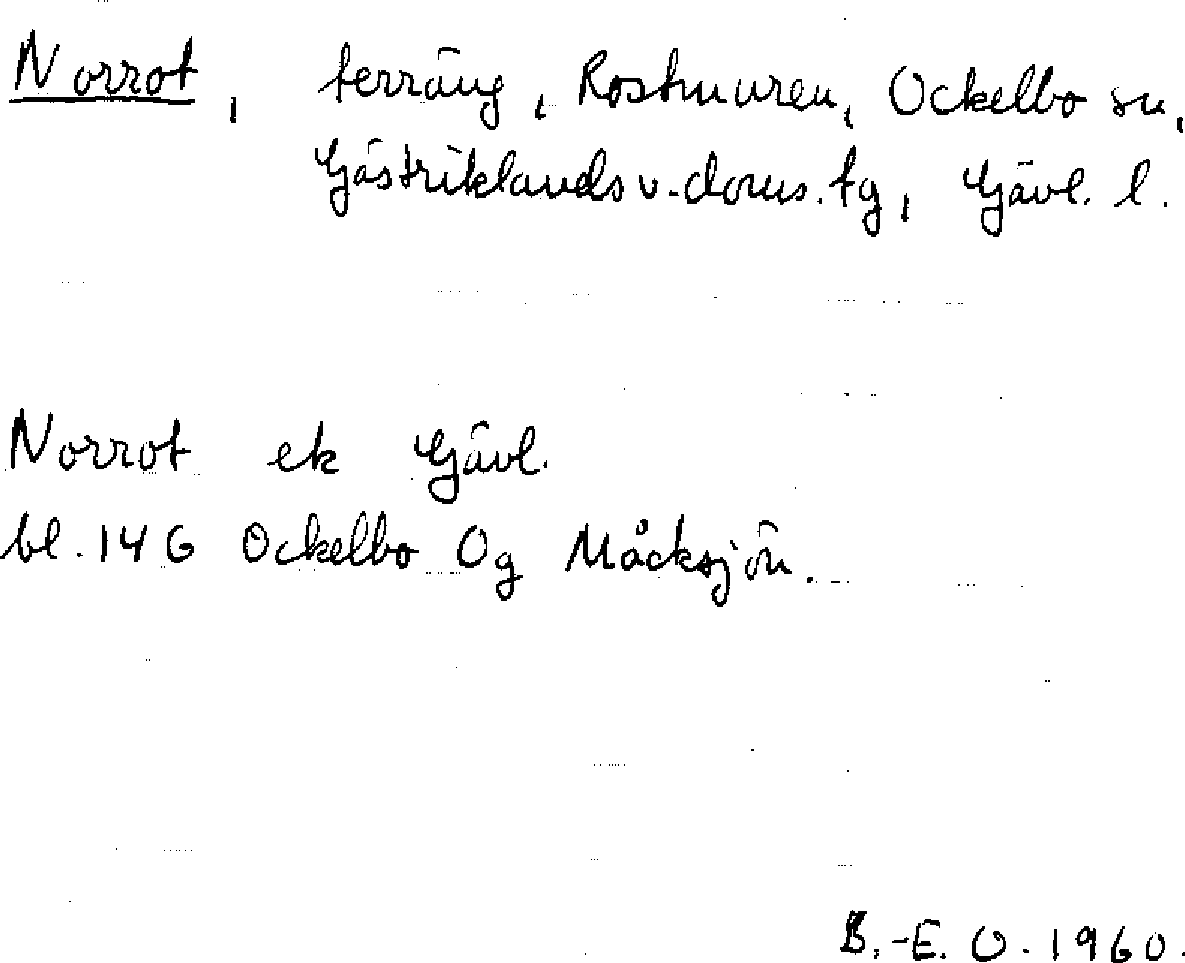 Norrot, terräng, Rostmuren, Ockelbo sn,
Gästriklands v. doms. tg, Gävl. l.
Norrot ek Gävl.
bl. 14 G Ockelbo 0g Måcksjön.
B.-E. O. 1960.